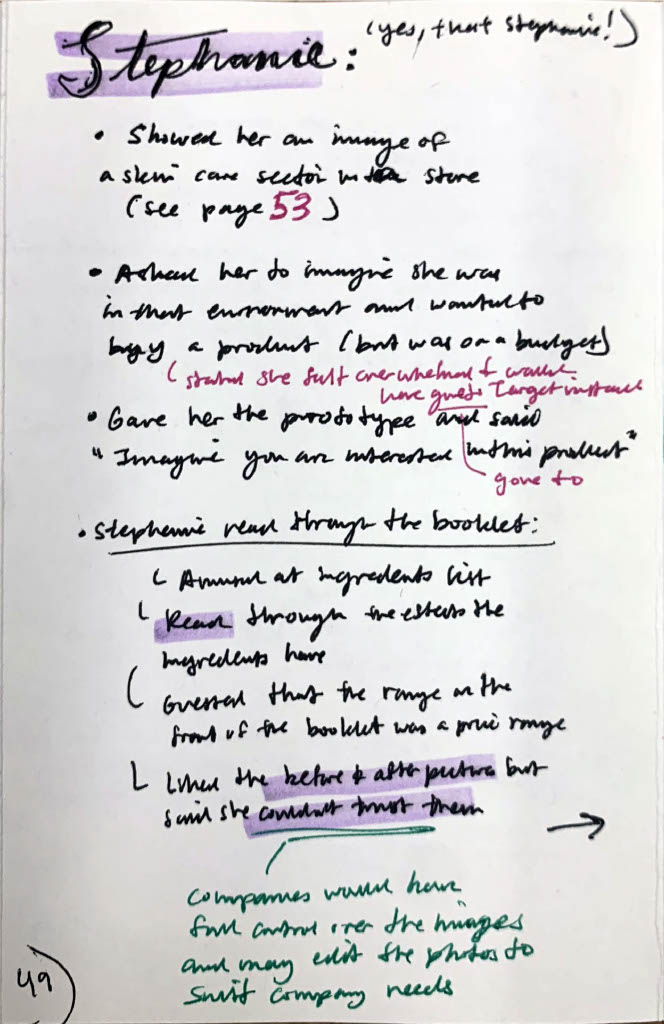 Stephanie:
(yes, that Stephanie!)
• Showed her an image of
a skin care sector in a store
(see page 53)
• Asked her to imagine she was
in that environment and wanted to
buy a product (but was on a budget)
stated she felt overwhelmed + would
have gone to Target instead
• Gave her the prototype and said
"Imagine you are interested in this product"
gone to
• Stephanie read through the booklet:
Amused at ingredients list
Read through the effects the
ingredients have
Guessed that the range on the
front of the booklet was a price range
Liked the before & after pictures but
said she couldn't trust them
→
companies would have
full control over the images
and may edit the photos to
suit company needs
49